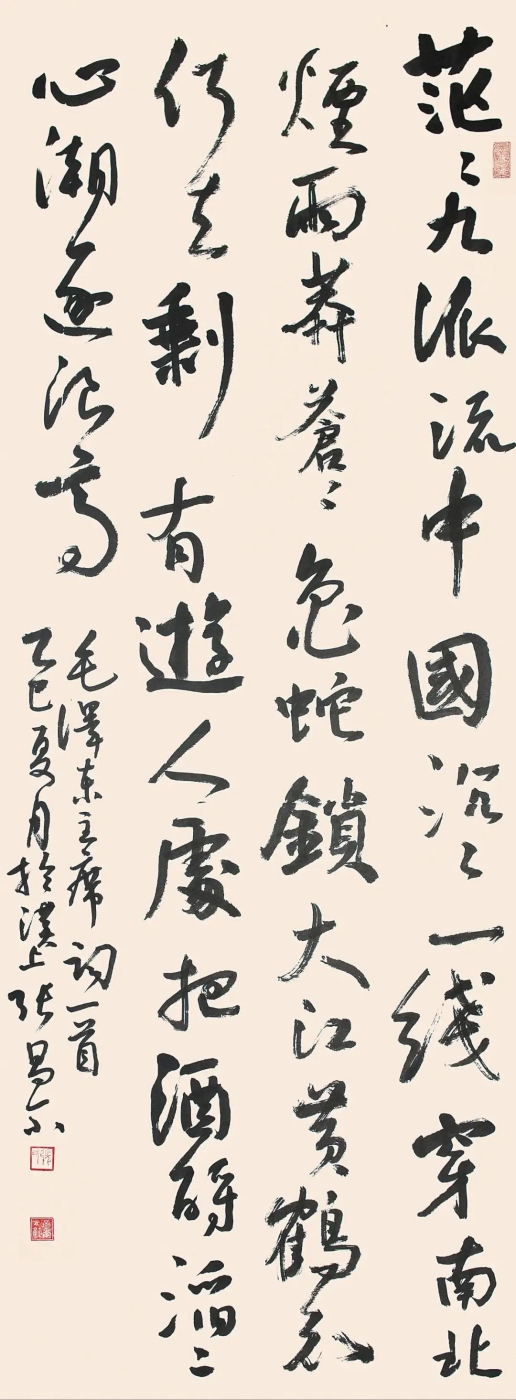 茫〻九派流中國沉〻一綫穿南北
煙雨莽蒼〻龜蛇鎖大江黄鶴知
何去剩有遊人處把酒酹滔〻
心潮逐浪高
毛澤东主席詞一首
乙巳夏月於漢上張昌尔